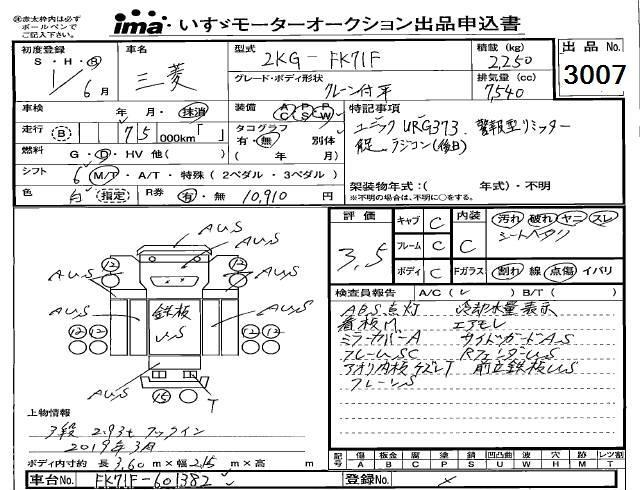 ※赤太枠内は必ず
ボールペンで
ご記入下さい。
ima いすゞモーターオークション出品申込書
初度登録
S・H・R
1年 6月
車名
三菱
型式
2KG-FK71F
グレード・ボディ形状
クレーン付平
積載 (kg)
2,250
排気量 (cc)
7,540
出品 No.
3007
車検
年 月・抹消
走行 (B) 75 000km「 」
燃料
G・D・HV 他( )
シフト
6 M/T・A/T・特殊 (2ペダル・3ペダル)
色
白 (指定)
R券
有・無 10,910 円
装備 AC PS PW
タコグラフ 別体
有・無 ( 年 月)
特記事項
ユニック URG373. 警報型リミッター
ラジコン(後日)
架装物年式:( 年式)・不明
※不明の場合は、不明に○をする。
評価
3,5
キャブ C
フレーム C
ボディ C
内装 C
Fガラス
汚れ 破れ ヤニ スレ
シートヘタリ
割れ 線 点傷 イバリ
検査員報告 A/C( ) B/T( )
ABS点灯 冷却水量表示
看板M エアモレ
ミラーカバーA サイドガードAS
フレームSC RフェンダーUS
アオリ内板キズレT 前立鉄板US
フレーンS
AUS
AUS
AUS
AUS
AUS
AUS
AUS
12
12
12
12
12
12
15
鉄板
US
T
上物情報
3段 2.93t フックイン
2019年3月
ボディ内寸約 長 3.60 m×幅 2.15 m×高 m
記号 傷A 板金B 腐C 塗S 凹凸曲U 波W 穴H 跡M レツ割T
車台No. FK71F-601382
登録No.